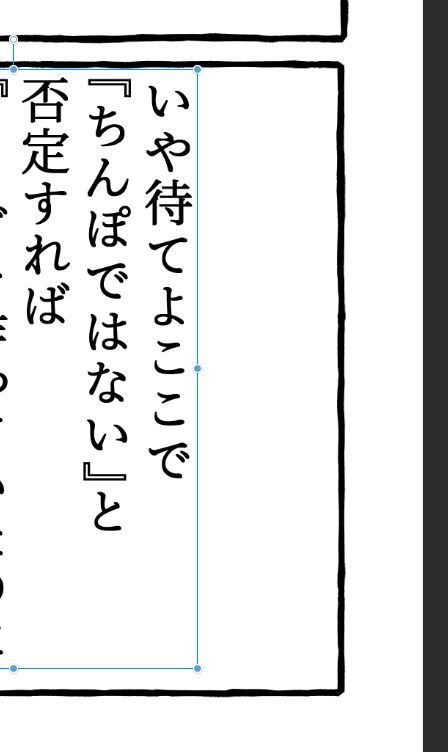 いや待てよここで
『ちんぽではない』と
否定すれば